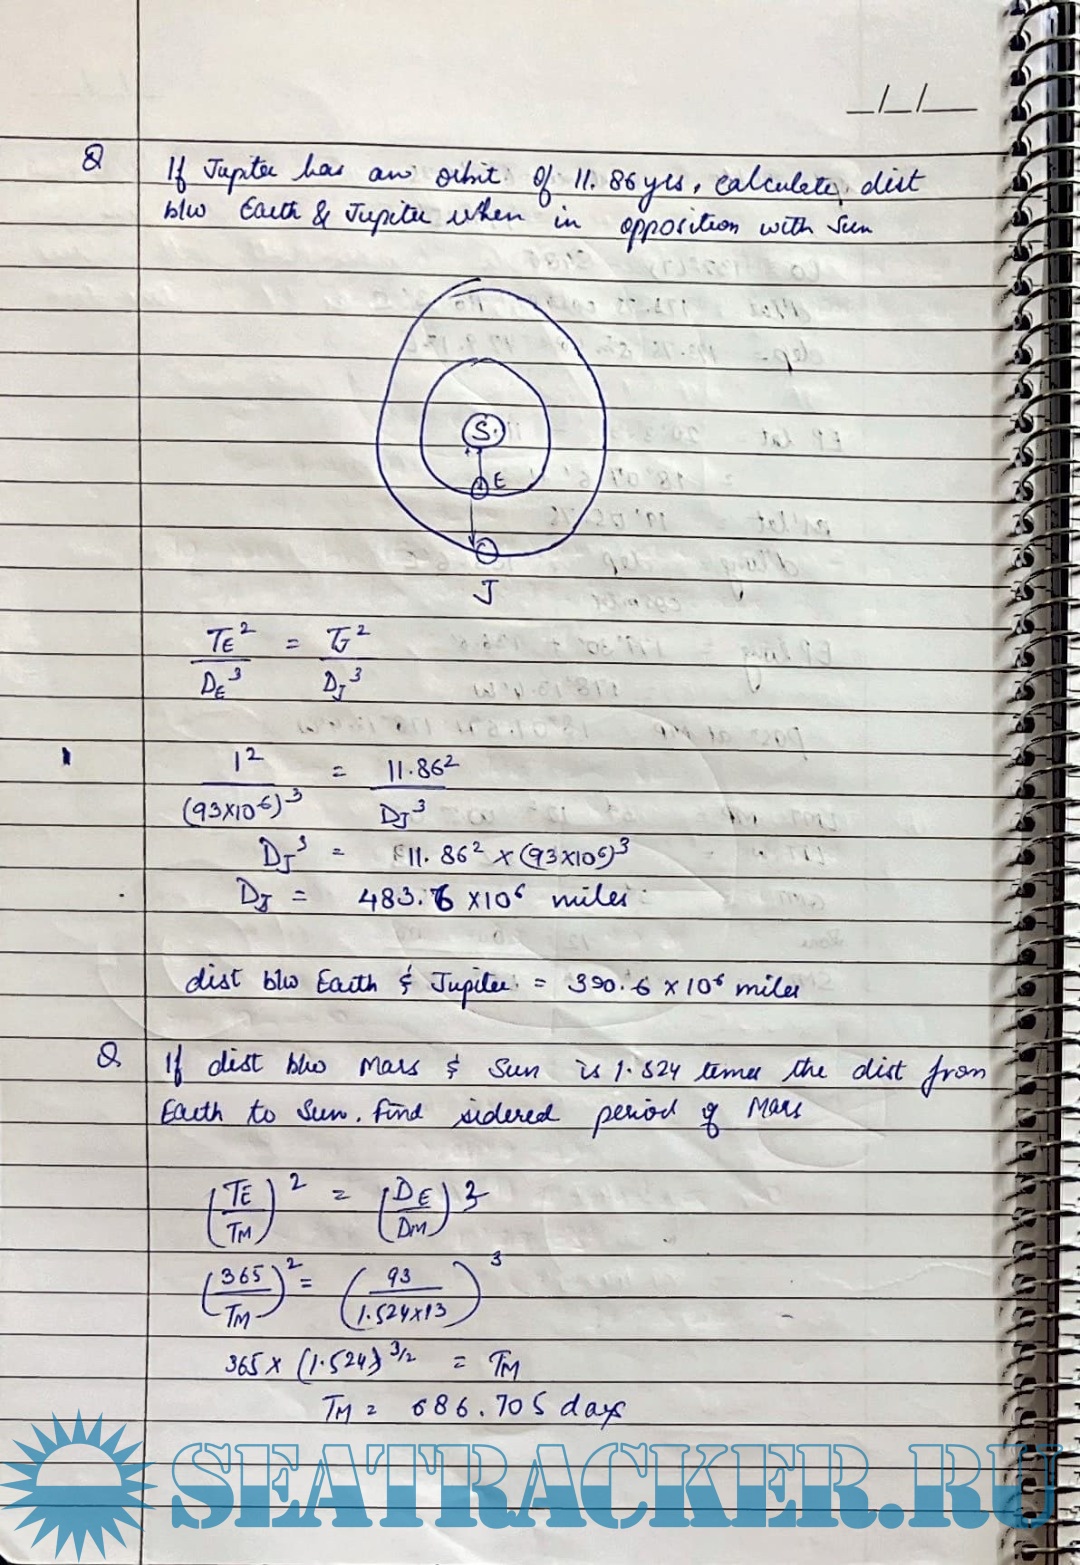 _/_/__
Q If Jupiter has an orbit of 11.86 yrs, calculate dist
b/w Earth & Jupiter when in opposition with Sun
S
E
J
TE² = TJ²
DE³ DJ³
1² = 11.86²
(93×10⁶)³ DJ³
DJ³ = 11.86² × (93×10⁶)³
DJ = 483.6 ×10⁶ miles
dist b/w Earth & Jupiter = 390.6 × 10⁶ miles
Q If dist b/w Mars & Sun is 1.524 times the dist from
Earth to Sun. Find sidereal period of Mars
(TE/TM)² = (DE/DM)³
(365/TM)² = (93/1.524×93)³
365 × (1.524)^3/2 = TM
TM = 686.705 days
SEATRACKER.RU